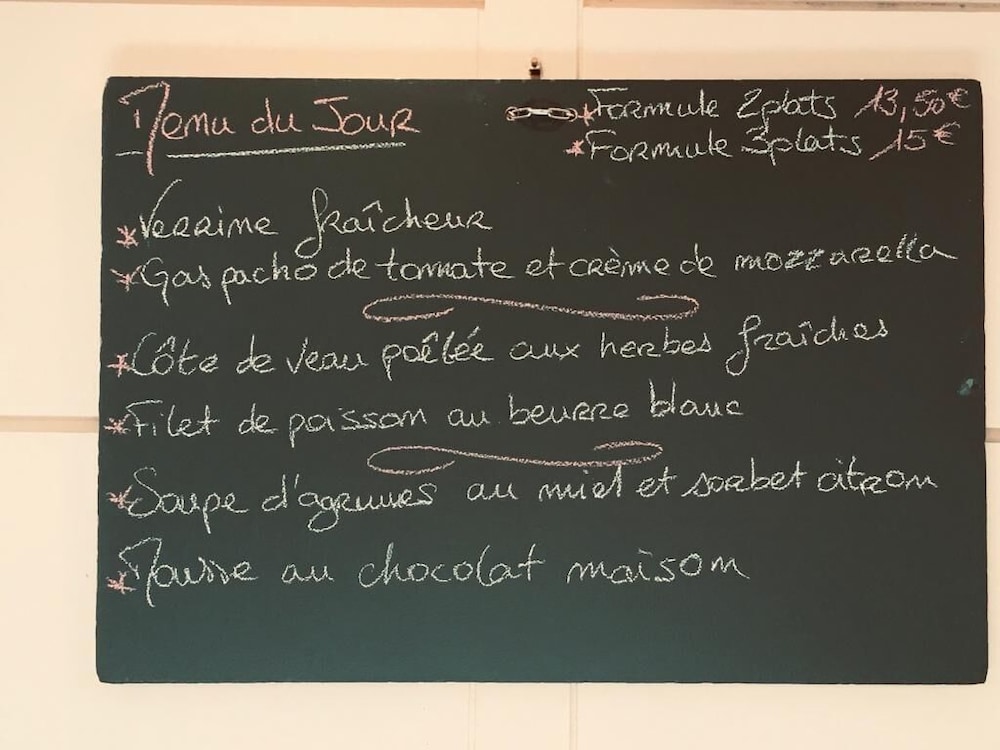 Menu du Jour
* Formule 2plats 13,50€
* Formule 3plats 15€
* Verrine fraîcheur
* Gaspacho de tomate et crème de mozzarella
* Côte de veau poêlée aux herbes fraîches
* Filet de poisson au beurre blanc
* Soupe d'agrumes au miel et sorbet citron
* Mousse au chocolat maison